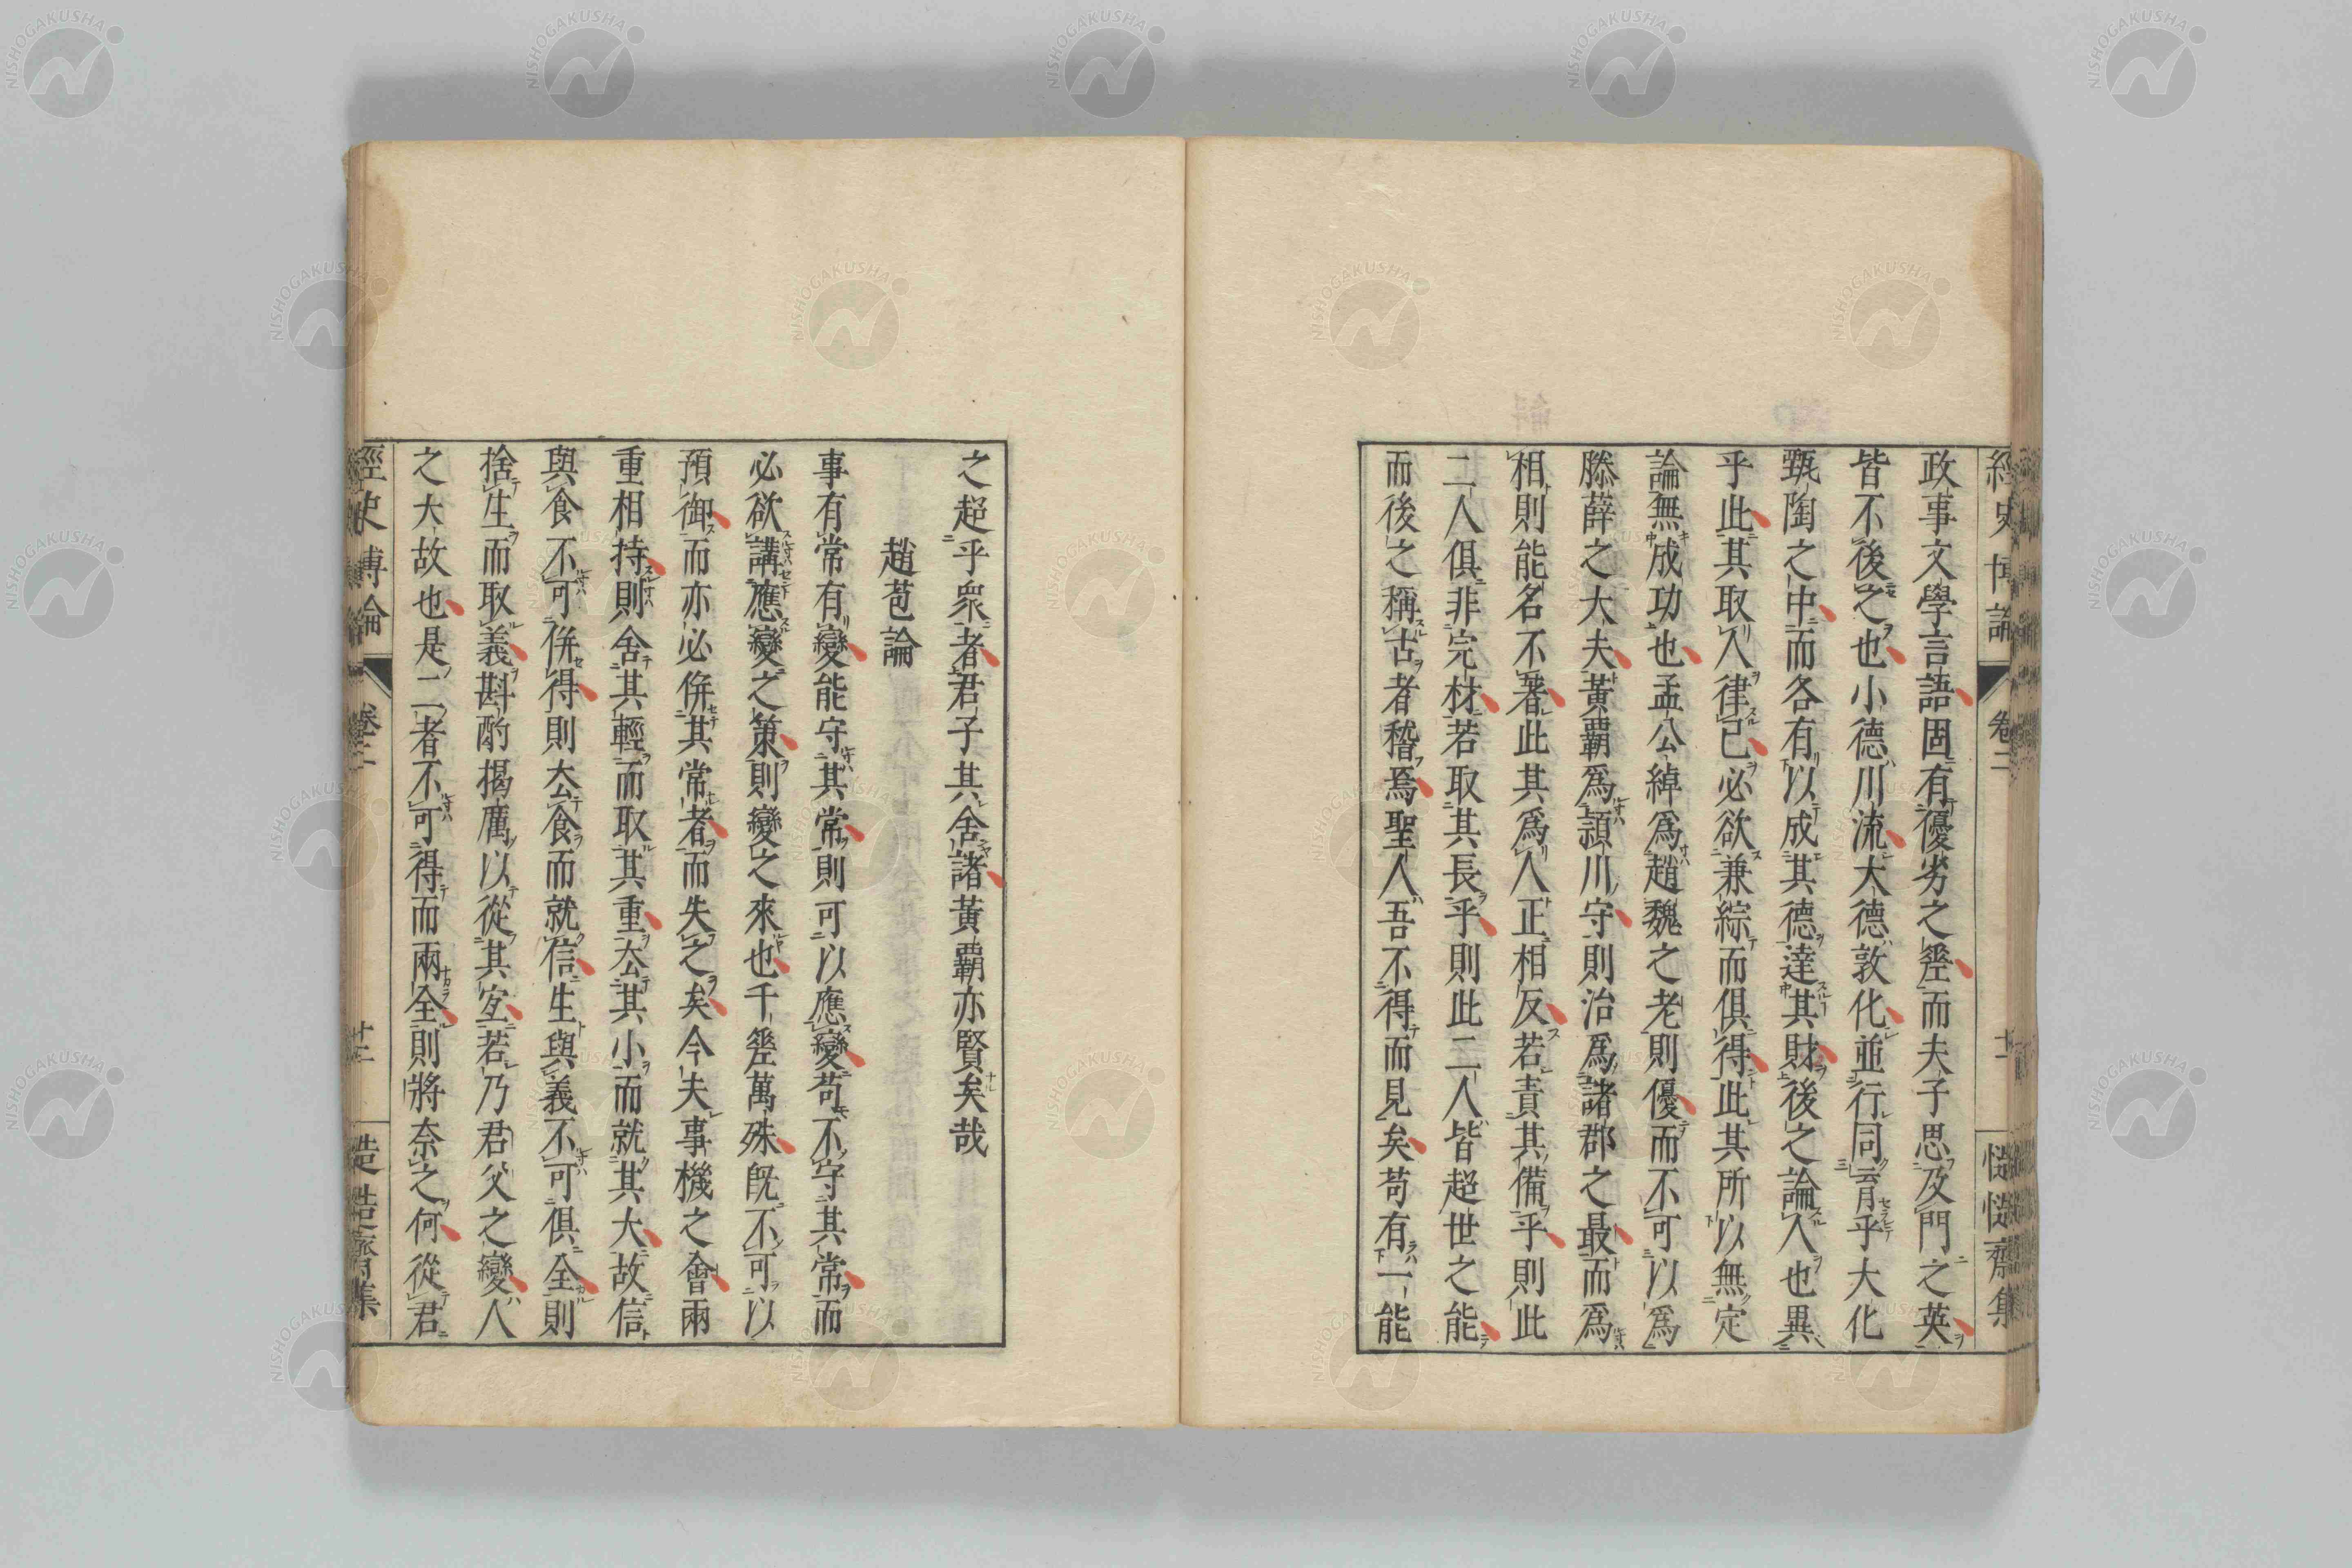 經史博論 卷二 十一 慥慥齋集
政事文學言語固有優劣之等而夫子思及門之英
皆不後之也小德川流大德敦化並行同育乎大化
甄陶之中而各有以成其德達其財後之論人也異
乎此其取人律己必欲兼綜而俱得此其所以無定
論無成功也孟公綽爲趙魏之老則優而不可以爲
滕薛之大夫黃覇爲頴川守則治爲諸郡之最而爲
相則能名不著此其爲人正相反若責其備乎則此
二人俱非完材若取其長乎則此二人皆超世之能
而後之稱古者稽焉聖人吾不得而見矣苟有一能
之超乎衆者君子其舍諸黃覇亦賢矣哉
趙苞論
事有常有變能守其常則可以應變苟不守其常而
必欲講應變之策則變之來也千等萬殊旣不可以
預御而亦必倂其常者而失之矣今夫事機之會兩
重相持則舍其輕而取其重去其小而就其大故信
與食不可倂得則去食而就信生與義不可俱全則
捨生而取義斟酌揭厲以從其宜若乃君父之變人
之大故也是二者不可得而兩全則將奈之何從君
經史博論 卷二 十二 慥慥齋集